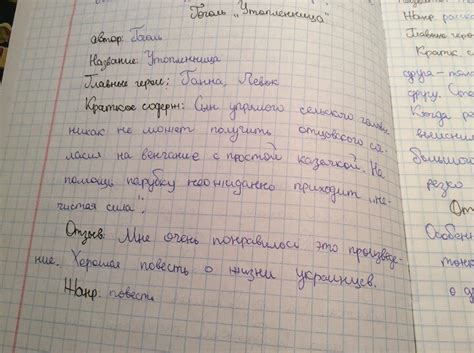 Гоголь „Утопленница"
автор: Гоголь
Название: Утопленница
Главные герои: Ганна, Левко
Краткое содерж: Сын упрямого сельского головы
никак не может получить отцовского со-
гласия на венчание с простой козачкой. На
помощь парубку неожиданно приходит „не-
чистая сила".
Отзыв: Мне очень понравилось это произведе-
ние. Хорошая повесть о жизни украинцев.
Жанр: повести
Жанр: расс
Главные геро
Кратк. со
друзя - пал
другу. Соба
Когда ра
выяснил
большой
резко
От
Особен
тонк
о др